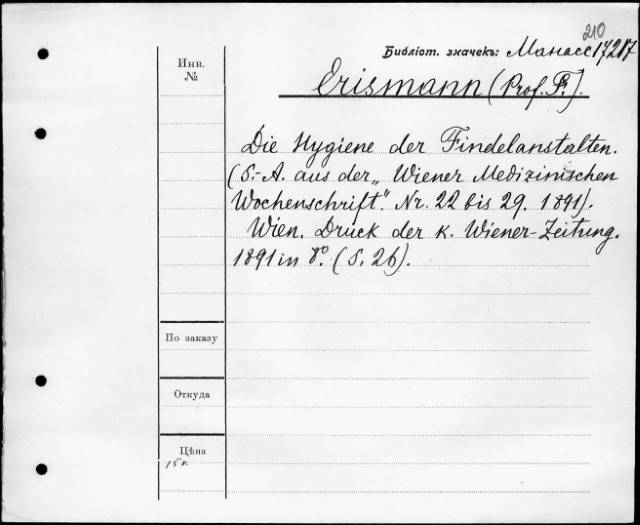 210
Библіот. значекъ: Манасс 17217
Инв.
№
Erismann (Prof. F.).
Die Hygiene der Findelanstalten.
(S.-A. aus der „Wiener Medizinischen
Wochenschrift". Nr. 22 bis 29. 1891).
Wien. Druck der k. Wiener-Zeitung.
1891 in 8º. (S. 26).
По заказу
Откуда
Цѣна
15 к